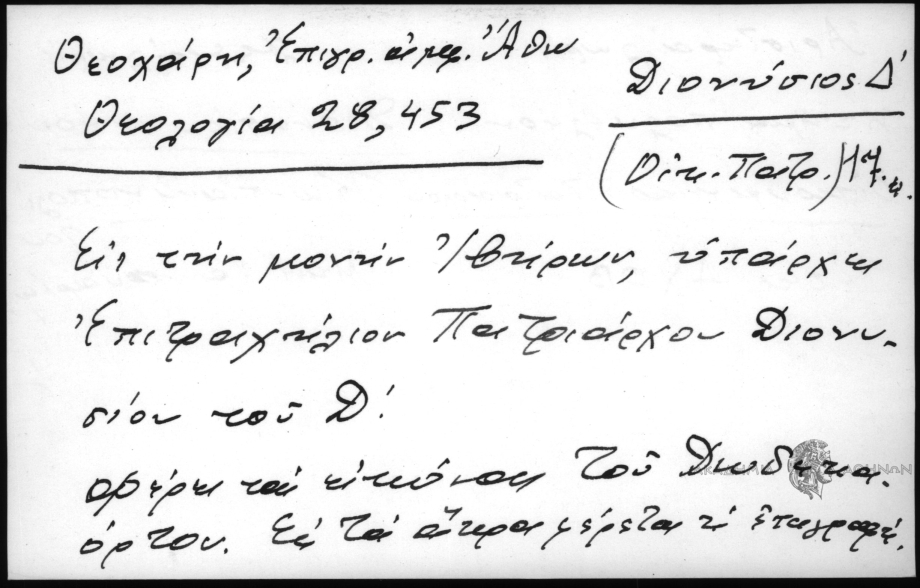 Θεοχάρη, Ἐπιγρ. ἀμφ. Ἄθω
Θεολογία 28, 453
Διονύσιος Δ'
(Οἰκ. Πατρ.) 17. κ.
Εἰς τὴν μονὴν Ἰβήρων, ὑπάρχει
Ἐπιτραχήλιον Πατριάρχου Διονυ-
σίου τοῦ Δ'.
φέρει τὰς εἰκόνας τοῦ Δωδεκα-
όρτου. Εἰς τὰ ἄκρα φέρεται ἡ ἐπιγραφή.
ΑΚΑΔΗΜΙΑ ΑΘΗΝΩΝ